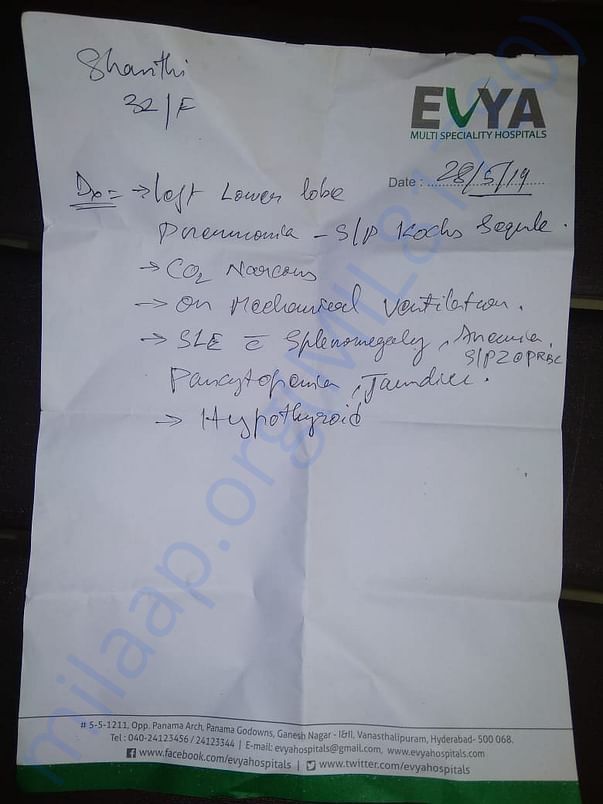 Shanthi
32/F
EVYA
MULTI SPECIALITY HOSPITALS
Date : 28/5/19
Dx = → Left Lower lobe
Pneumonia - S/P Kochs Sequle.
→ CO2 Narcosis
→ On Mechanical Ventilation.
→ SLE c̅ Splenomegaly, Anemia,
S/P 2 PRBC
Pancytopenia, Jaundice.
→ Hypothyroid
# 5-5-1211, Opp. Panama Arch, Panama Godowns, Ganesh Nagar - I&II, Vanasthalipuram, Hyderabad- 500 068.
Tel : 040-24123456 / 24123344 | E-mail: evyahospitals@gmail.com, www.evyahospitals.com
www.facebook.com/evyahospitals | www.twitter.com/evyahospitals
milaap.org